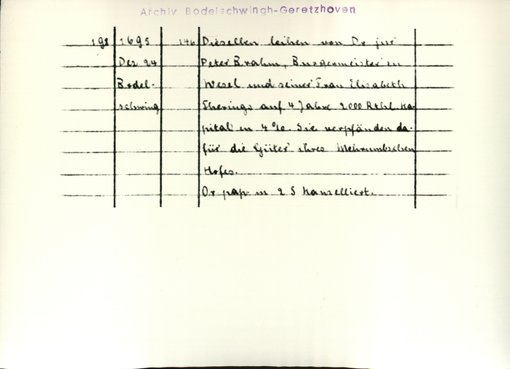 Archiv Bodelschwingh-Geretzhoven
198 1695 146 Dieselben leihen von Dr jur
Dez 24 Peter Brahm, Burgermeister in
Bodel- Wesel und seiner Frau Elisabeth
schwing Sherings auf 4 Jahre 2000 Rthl. Ka-
pital zu 4 %. Sie verpfänden da-
für die Güter ihres Mehrumbschen
Hofes.
Or pap m 2 S kanselliert.